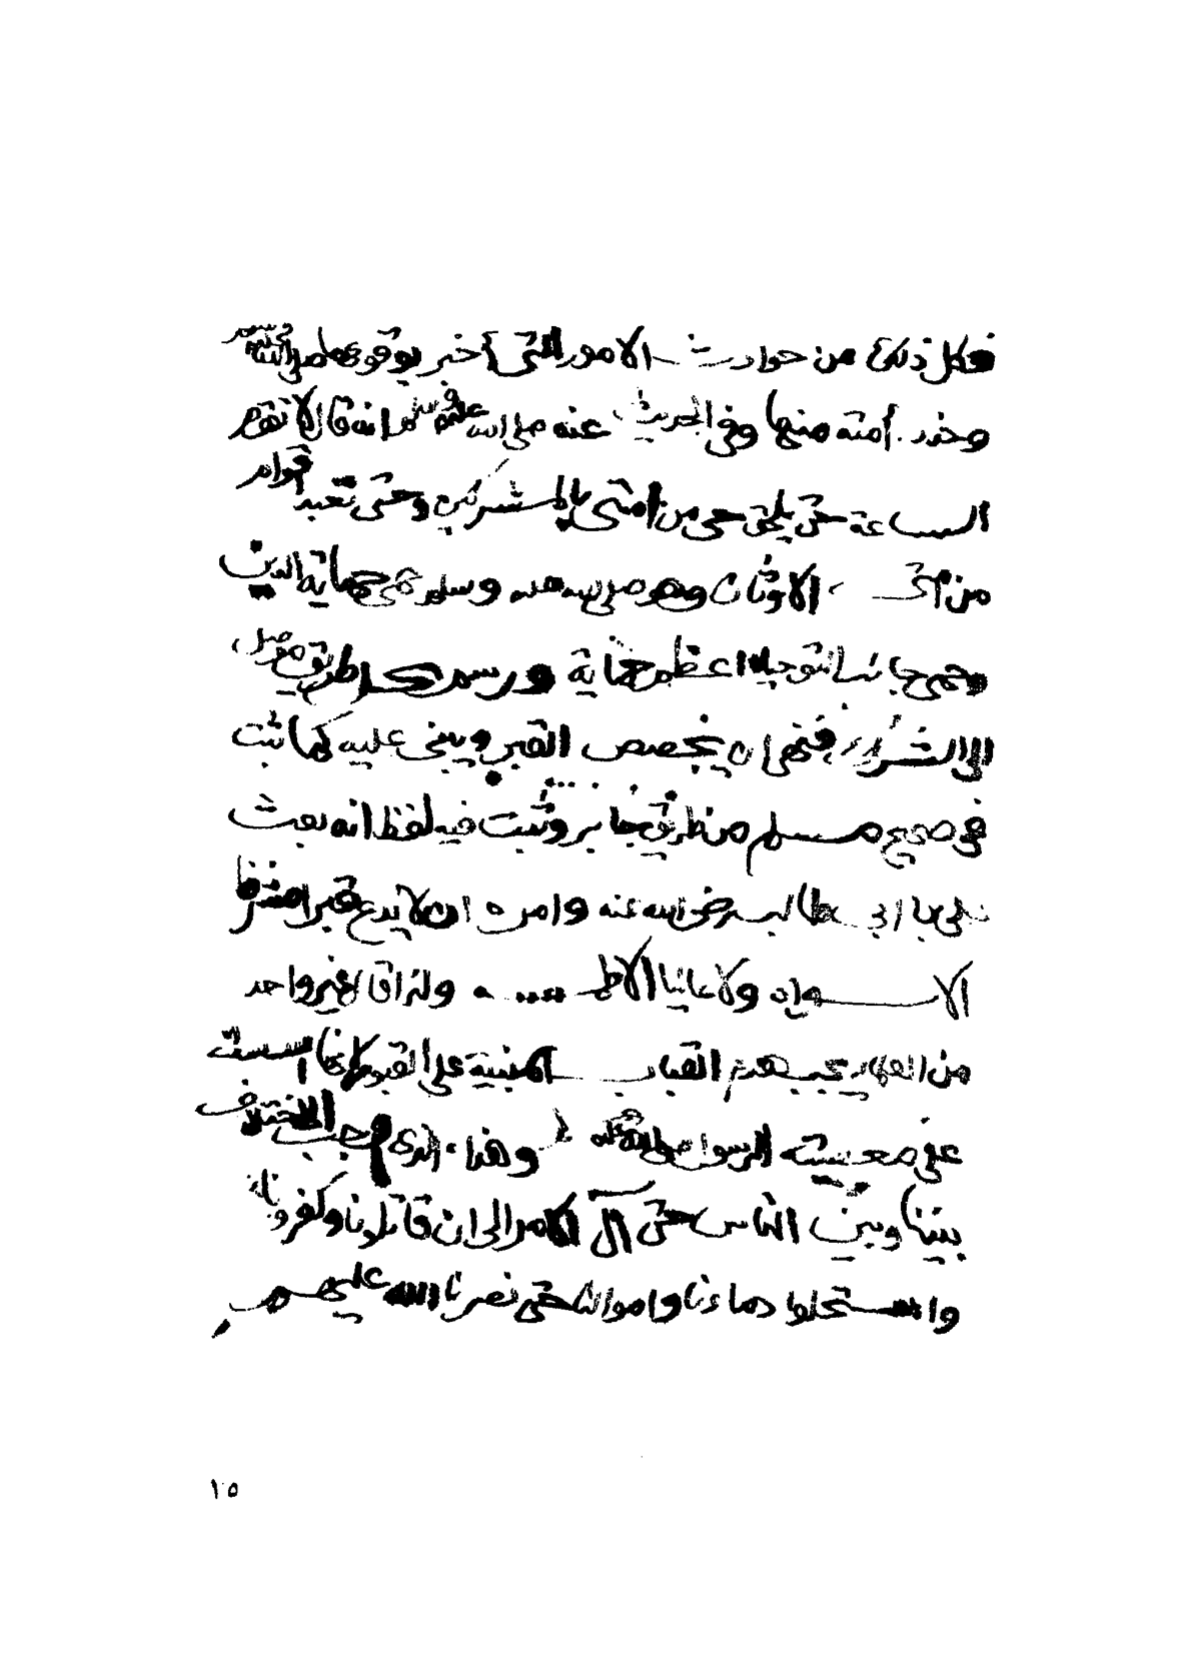 فكل ذلك من حوادث الامور التي أخبر بوقوعها صلى الله عليه وسلم
وحذر أمته منها وفي الحديث عنه صلى الله عليه وسلم انه قال لا تقوم
الساعة حتى يلحق حي من امتي بالمشركين وحتى تعبد اقوام
من امتي الاوثان وهو صلى الله عليه وسلم حمى حماية الدين
وحمى جانب التوحيد اعظم حماية وسد كل طريق موصل
الى الشرك فنهى ان يجصص القبر ويبنى عليه كما ثبت
في صحيح مسلم من طريق جابر وثبت فيه لفظ انه بعث
علي بن ابي طالب رضي الله عنه وامره ان لا يدع قبرا مشرفا
الا سواه ولا تمثالا الا طمسه ولذا قال غير واحد
من العلماء يجب هدم القباب المبنية على القبور لانها اسست
على معصية الرسول صلى الله عليه وسلم وهذا الذي اوجب الاختلاف
بيننا وبين الناس حتى آل الامر الى ان قاتلونا وكفرونا
واستحلوا دماءنا واموالنا حتى نصرنا الله عليهم
١٥